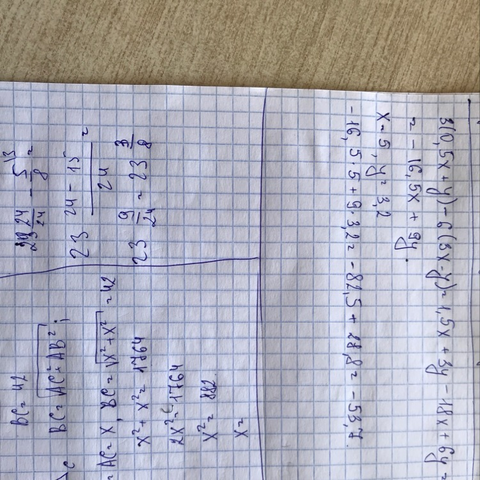 3(0,5x+y)-6(3x-y)=1,5x+3y-18x+6y=
=-16,5x+9y.
x=5, y=3,2
-16,5·5+9·3,2=-82,5+28,8=-53,7.
24/24 - 5/8 =
23 24-15/24 =
23 9/24 = 23 3/8
BC=42
BC=√AC²+AB²;
=AC=x, BC=√x²+x²=42
x²+x²=1764
2x²=1764
x²=882
x=